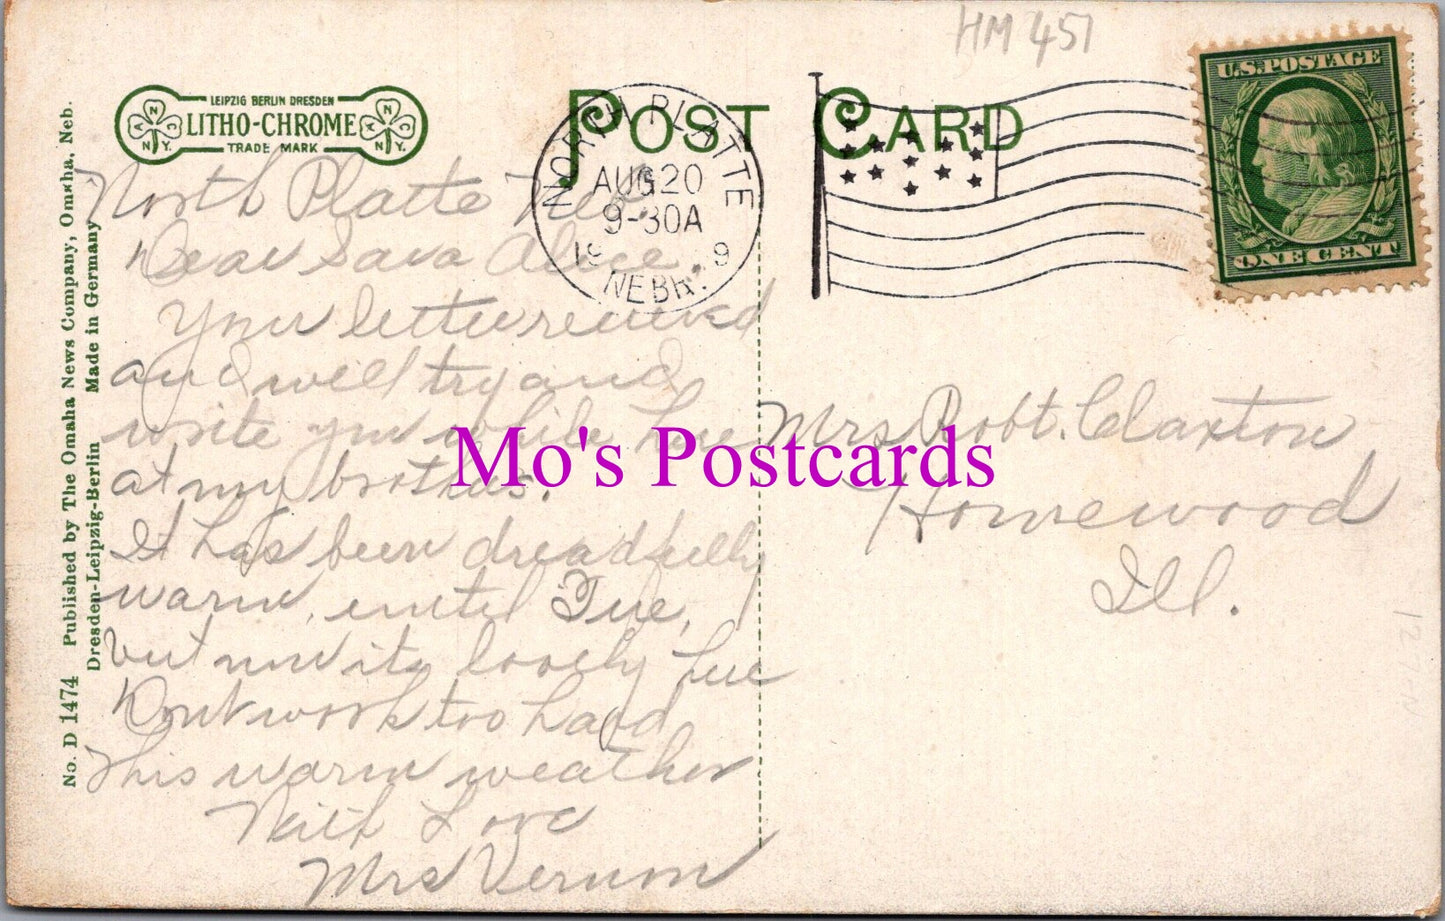 HM 451
U.S. POSTAGE
ONE CENT
POST CARD
LEIPZIG BERLIN DRESDEN
LITHO-CHROME
TRADE MARK
ANCNY.
ANCNY.
NORTH PLATTE
AUG 20
9-30A
19 9
NEBR.
North Platte Neb
Dear Sara Alice
Your letter received
and I will try and
write you while here
at my brothers.
It has been dreadfully
warm, until Tue,
but now its lovely here
Dont work too hard
This warm weather
With Love
Mrs Vernon
Mrs Robt. Claxton
Homewood
Ill.
No. D 1474 Published by The Omaha News Company, Omaha, Neb.
Dresden-Leipzig-Berlin Made in Germany
Mo's Postcards